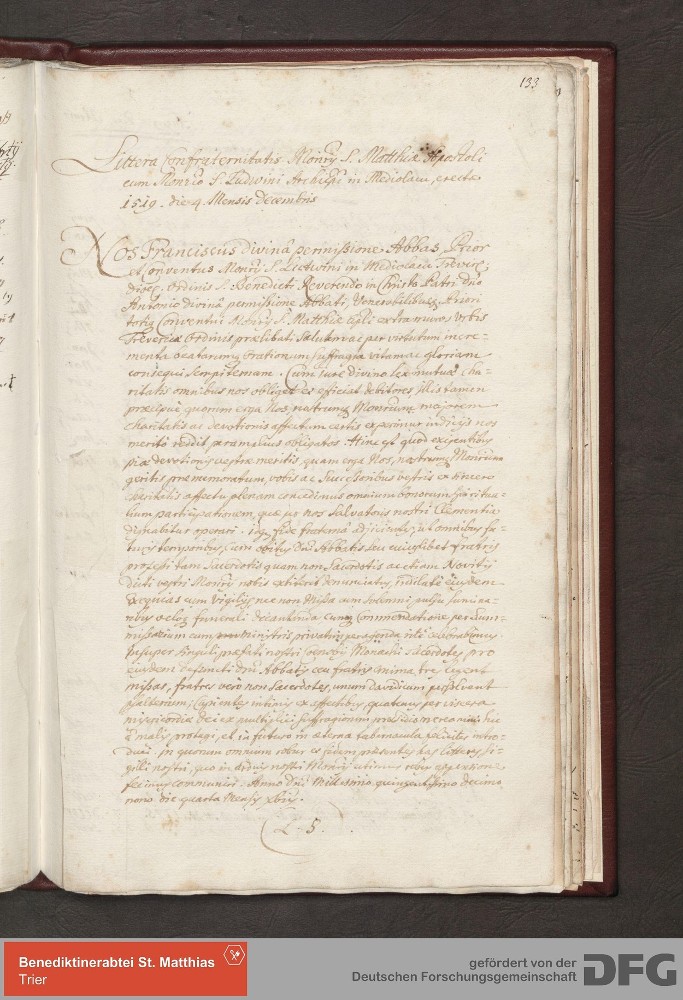 133
Littera Confraternitatis Monrÿ S. Matthiæ Apostoli
cum Monrio S. Ludwini Archiepi in Mediolacu, erecta
1519. die 4. Mensis Decembris
Nos Franciscus divinâ permissione Abbas, Prior
et Conventus Monrÿ S. Lutwini in Mediolacu Trever:
dioec. ordinis S. Benedicti Reverendo in Christo Patri dno
Antonio divinâ permissione Abbati, Venerabilibusq Priori
totiq Conventui Monrÿ S. Matthiæ Apli extra muros Urbis
Trevericæ Ordinis prælibati Salutem ac per virtutum incre-
menta beatarumq orationum suffragia vitam ac gloriam
consequi sempiternam. Cum iure divino lex mutuæ cha-
ritatis omnibus nos obliget et efficiat debitores, illis tamen
præcipuè quorum erga Nos, nostrumq Monrium majorem
charitatis ac devotionis affectum certis experimur indicijs nos
merito reddit præ multis obligatos. Hinc est quod exigentibus
piæ devotionis vestræ meritis, quam erga Nos, nostrumq Monrium
geritis præmemoratum, vobis ac Successoribus vestris ex sincero
charitatis affectu plenam concedimus omnium bonorum spiritua-
lium participationem, quæ per nos Salvatoris nostri Clementia
dignabitur operari. fraternâ adjicientes, ut omnibus fu-
turis temporibus, cum obitus Dni Abbatis seu cuiuslibet fratris
professi tam Sacerdotis quam non Sacerdotis ac etiam Novitÿ
dicti vestri Monrÿ nobis extiterit denunciatus, eiusdem
Exequias cum Vigilÿs necnon Missa cum solemni pulsu
funerali decantanda cumq Commendatione per
missarium cum ministris privatis peragenda ritè celebrabimus
Insuper singuli præfati nostri Coenobÿ Monachi Sacerdotes pro
eiusdem defuncti dni Abbatis ceu fratris anima tres legent
missas, fratres verò non Sacerdotes, unum Davidicum persolvent
psalterium; Cupientes intimis ex affectibus, quatenus per viscera
misericordiæ dei ex multiplici suffragiorum præsidio mereamini hic
à malis protegi, et in futuro in æterna tabernacula feliciter intro-
duci. in quorum omnium robur et fidem præsentes has litteras Si-
gilli nostri, quo in arduis nostri Monrÿ utimur rebus appensione
fecimus communiri. Anno Dni Millesimo quingentesimo decimo
nono die quarta Mensis Xbris.
L. S.
Benediktinerabtei St. Matthias
Trier
gefördert von der
Deutschen Forschungsgemeinschaft
DFG